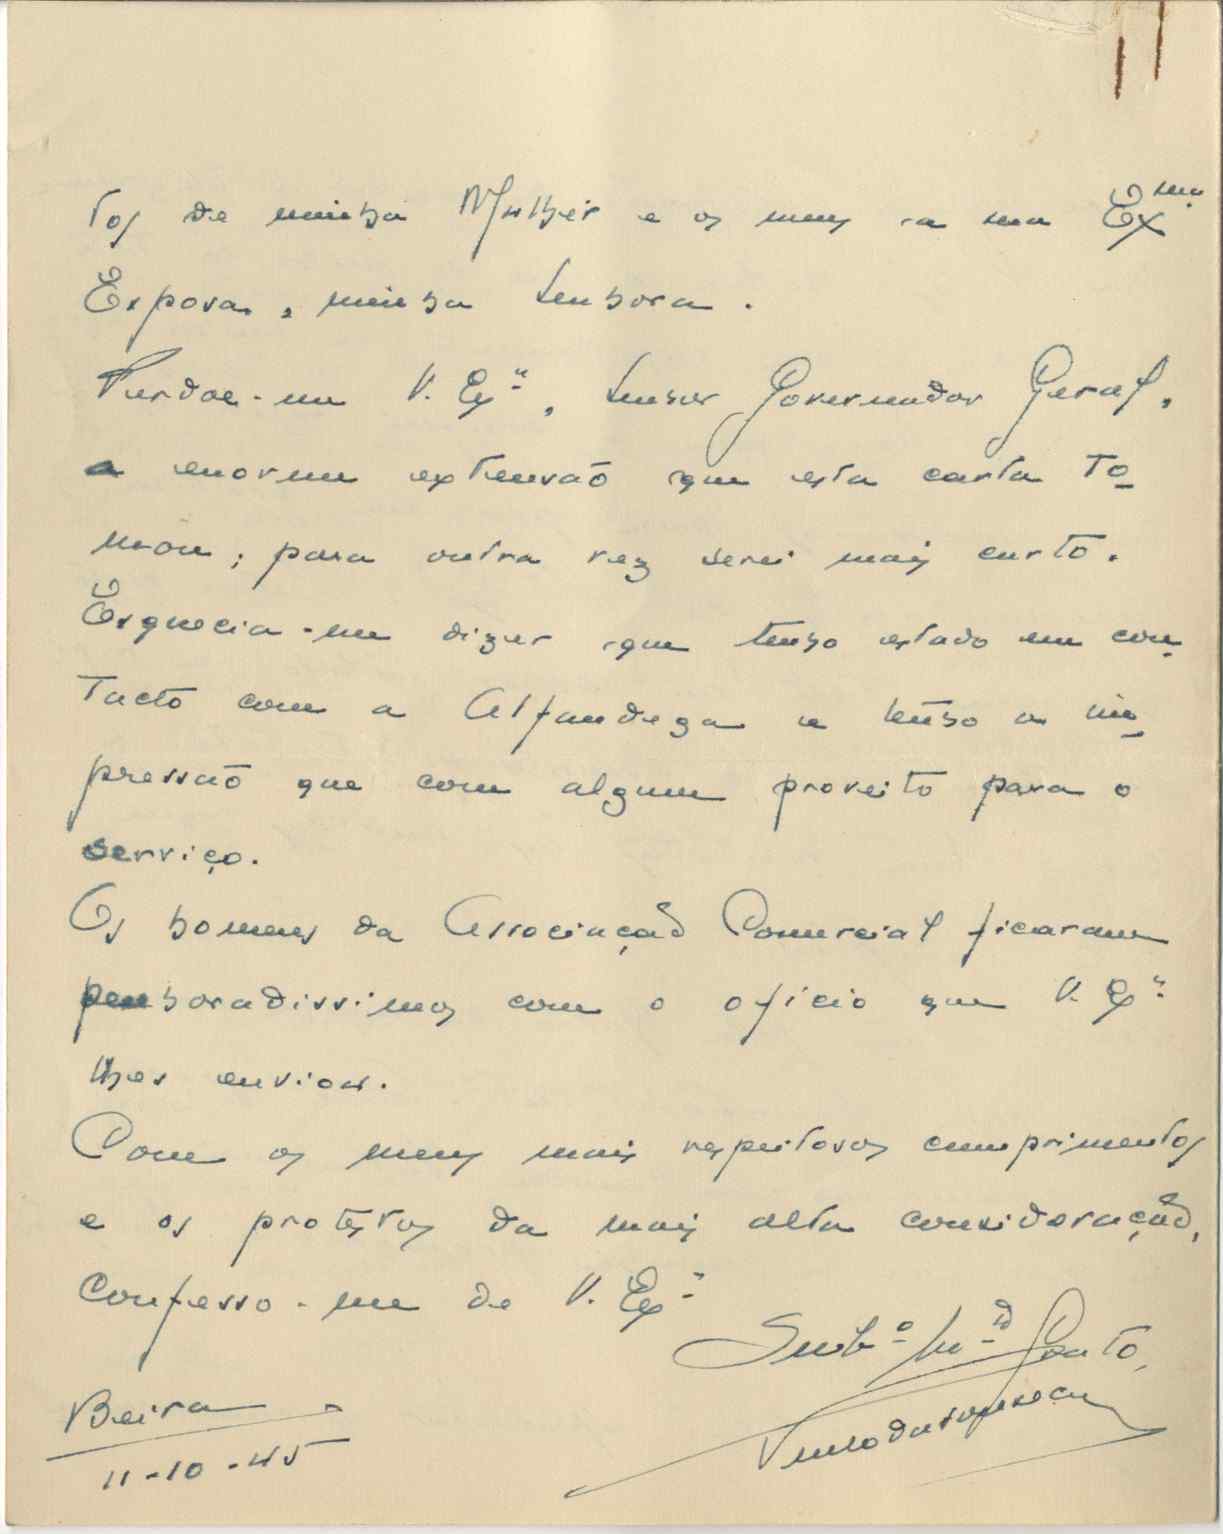 tos de minha Mulher e os meus a sua Exma
Esposa, minha Senhora.
Perdoe-me V. Exª, Senhor Governador Geral,
a enorme extensão que esta carta to-
mou; para outra vez serei mais curto.
Esquecia-me dizer que tenho estado em con-
tacto com a Alfandega e tenho a im-
pressão que com algum proveito para o
serviço.
Os homens da Associação Comercial ficaram
penhoradissimos com o oficio que V. Exª
lhes enviou.
Com os meus mais respeitosos cumprimentos
e os protestos da mais alta consideração,
Confesso-me de V. Exª
Subº Mtº Grato,
Beira
11-10-45